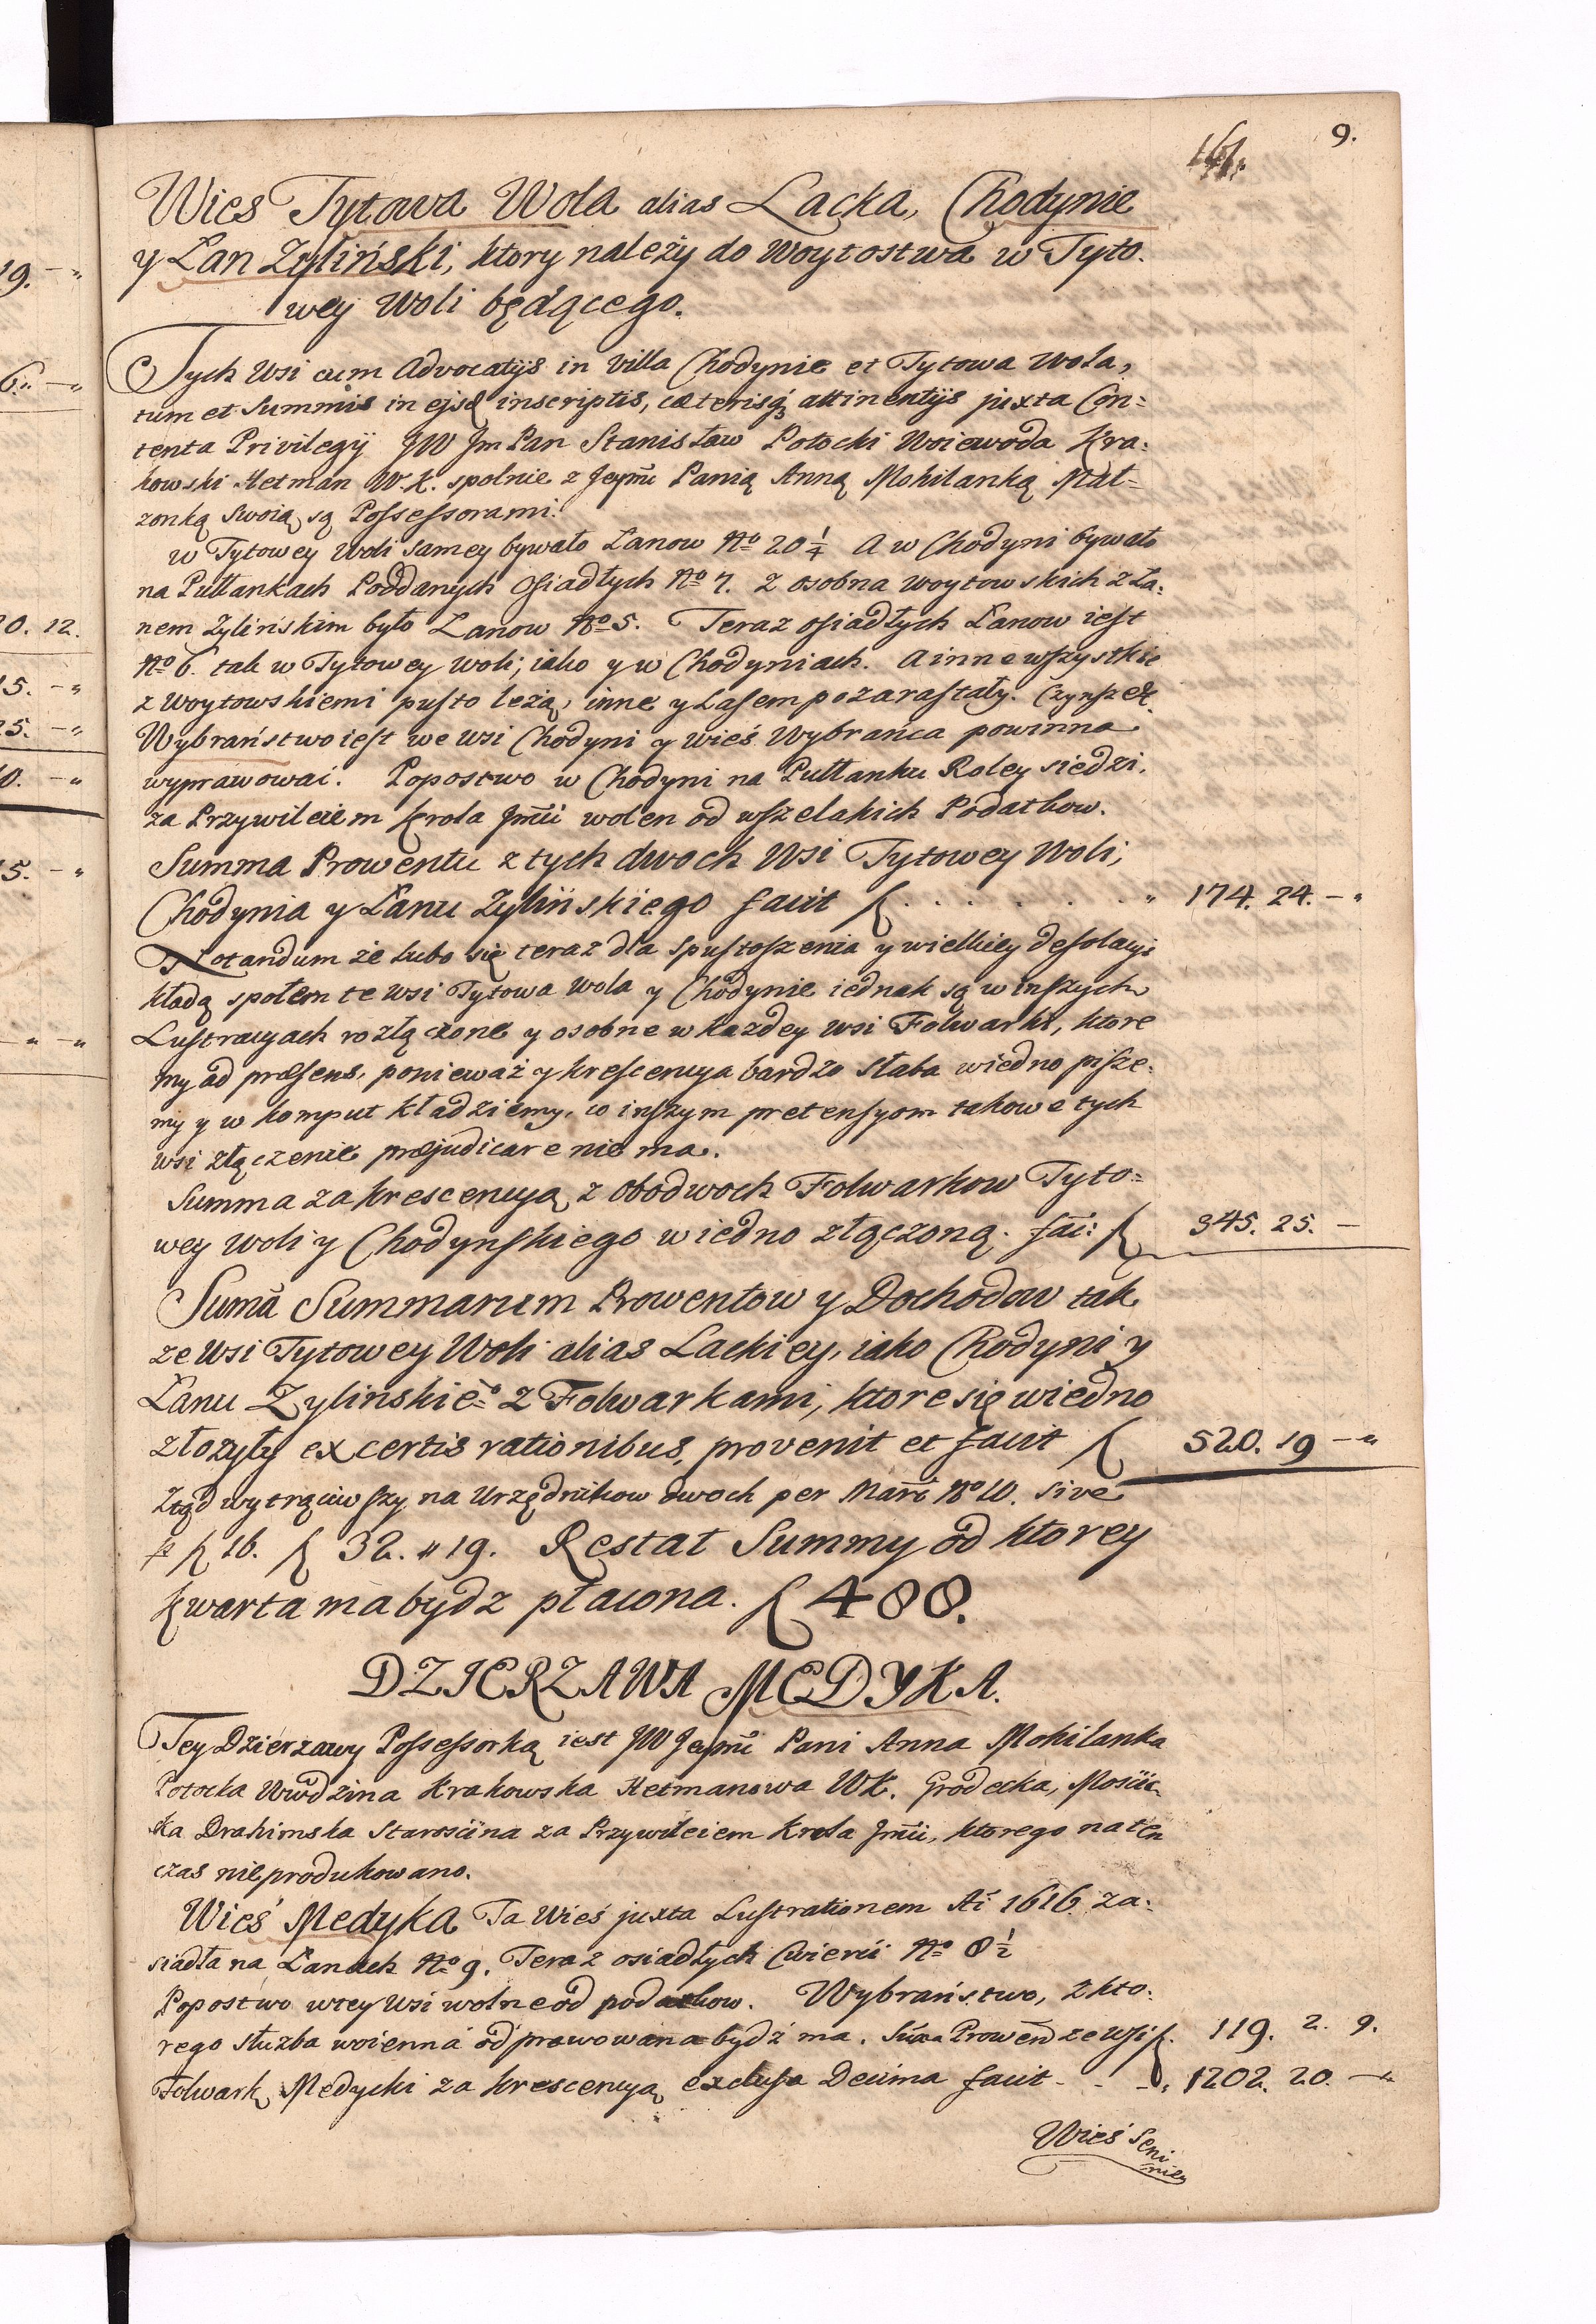 9.
Wies Tytowa Wola alias Lacka, Chodynie
y Łan Zyliński, ktory należy do Woytostwa w Tyto.
wey Woli będącego.
Tych Wsi cum Advocatijs in Villa Chodynie et Tytowa Wola,
tum et Summis in ejsd inscriptis, cæterisq attinentijs juxta Con=
tenta Privilegij JW Jm Pan Stanisław Potocki Woiewoda Kra:
kowski Hetman W. K. spolnie z Jeymci Panią Anną Mohilanką Mał-
zonką Swoią, są Possessorami.
w Tytowey Woli samey bywało Łanow No 20 1/4 A w Chodyni bywało
na Pułłankach Poddanych Osiadłych No 7. Z osobna woytowskich z Ła:
nem Zylińskim było Łanow No 5. Teraz osiadłych Łanow iest
No 6. tak w Tytowey Woli, iako y w Chodyniach. A inne wszystkie
z Woytowskiemi pusto leżą, inne y Lasem pozarastały. Czynsz etc.
Wybraństwo iest we wsi Chodyni y wieś Wybrańca powinna
wyprawować. Popostwo w Chodyni na Pułłanku Roley siedzi,
za Przywileiem Krola Jmci wolen od wszelakich Podatkow.
Summa Prowentu z tych dwoch Wsi Tytowey Woli,
Chodynia y Łanu Zylińskiego facit f. . . . . . . " 174. 24. – "
Notandum że lubo się teraz dla spustoszenia y wielkiey desolacyi
kładą społem te wsi Tytowa Wola y Chodynie iednak są w inszych
Lustracyach rozłączone y osobne w każdey wsi Folwarki, ktore
my ad præsens, ponieważ y krescencya bardzo słaba wiedno pisze:
my y w komput kładziemy, co inszym pretensyom takowe tych
wsi złączenie præjudicare nie ma.
Summa za krescencyą z obodwoch Folwarkow Tyto=
wey Woli y Chodynskiego w iedno złączoną. faci: f 345. 25. –
Suma Summarum Prowentow y Dochodow tak
ze Wsi Tytowey Woli alias Lackiey, iako Chodyni y
Łanu Zylinskieo z Folwarkami, ktore się wiedno
złożyły ex certis rationibus, provenit et facit f 520. 19 – "
Ztąd wytrąciwszy na Urzędnikow dwoch per Mar No 10. sive
f 16. f 32. " 19. Restat Summy od ktorey
kwarta ma bydz płacona. f 488.
DZIERZAWA MEDYKA.
Tey Dzierzawy Possessorką iest JW Jeymci Pani Anna Mohilanka
Potocka Wwdzina Krakowska Hetmanowa WK. Grodecka, Mościc
ka Drahimska Starościna za Przywileiem Krola Jmci, ktorego na ten
czas nieprodukowano.
Wieś Medyka Ta Wieś juxta Lustrationem Ai 1616. za:
siadła na Łanach No 9. Teraz osiadłych Cwierci No 8 1/2
Popostwo w tey wsi wolne od podatkow. Wybraństwo, z kto:
rego służba woienna odprawowana bydź ma. Suma Prowen ze wsi f. 119. 2. 9.
Folwark Medycki za krescencyą exclusa Decima facit - - - 1202. 20. – "
Wieś Seni